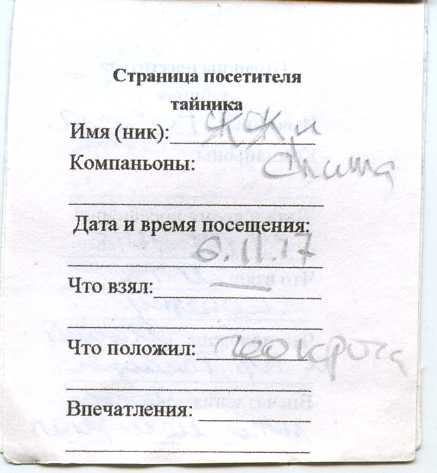 Страница посетителя
тайника
Имя (ник): ЖЖи
Компаньоны:
Дата и время посещения:
6.11.17
Что взял: —
Что положил:
Впечатления: